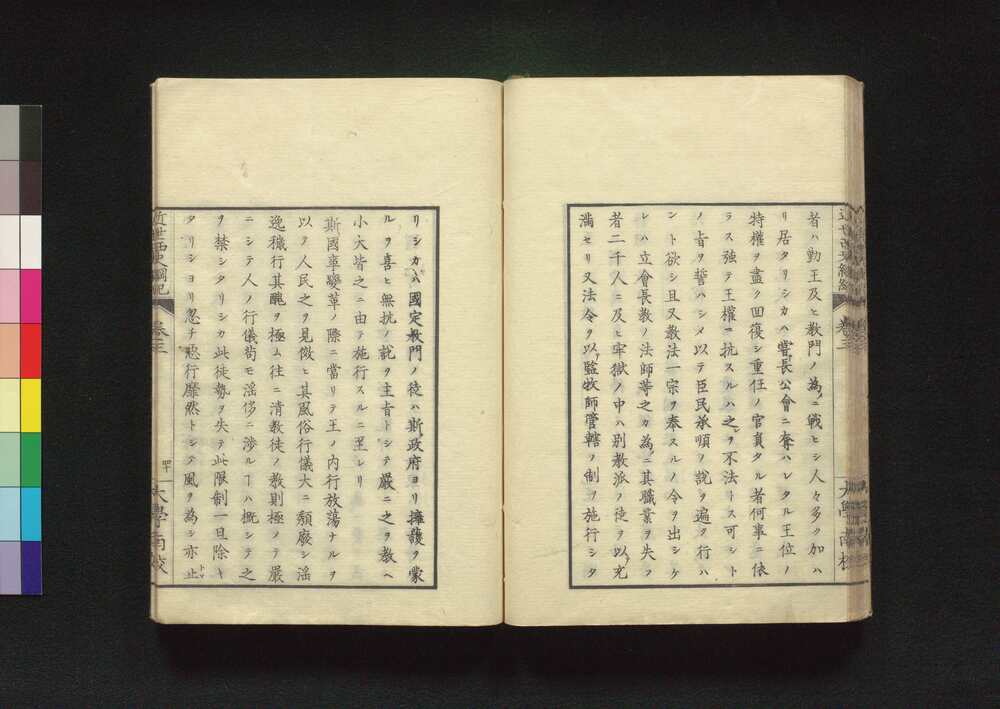 者ハ勤王及ヒ教門ノ為ニ戰ヒシ人々多ク加ハ
リ居タリシカハ嘗長公會ニ奪ハレタル王位ノ
特權ヲ盡ク回復シ重任ノ官員タル者何事ニ依
ラス強テ王權ニ抗スルハ之ヲ不法トス可シト
ノ旨ヲ誓ハシメ以テ臣民承順ノ說ヲ遍ク行ハ
ント欲シ且又教法一宗ヲ奉スルノ令ヲ出シケ
レハ立會長教ノ法師等之カ為ニ其職業ヲ失フ
者二千人ニ及ヒ牢獄ノ中ハ別教派ノ徒ヲ以充
満セリ又法令ヲ以監牧師管轄ノ制ヲ施行シタ
リシカハ國定教門ノ徒ハ斯政府ヨリ擁護ヲ蒙
ルヲ喜ヒ無抗ノ說ヲ主旨トシテ嚴ニ之ヲ教ヘ
小大皆之ニ由テ施行スルニ至レリ
斯國事變革ノ際ニ當リテ王ノ内行放蕩ナルヲ
以テ人民之ヲ見倣ヒ其風俗行儀大ニ頽廢シ滛
逸穢行其醜ヲ極ム往ニ清教徒ノ教則極メテ嚴
ニシテ人ノ行儀苟モ滛侈ニ渉ルヿハ概シテ之
ヲ禁シタリシカ此徒勢ヲ失テ此限制一旦除キ
タリショリ忽チ惡行靡然トシテ風ヲ為シ亦止
近世西史綱紀 卷三
四十 大學南校